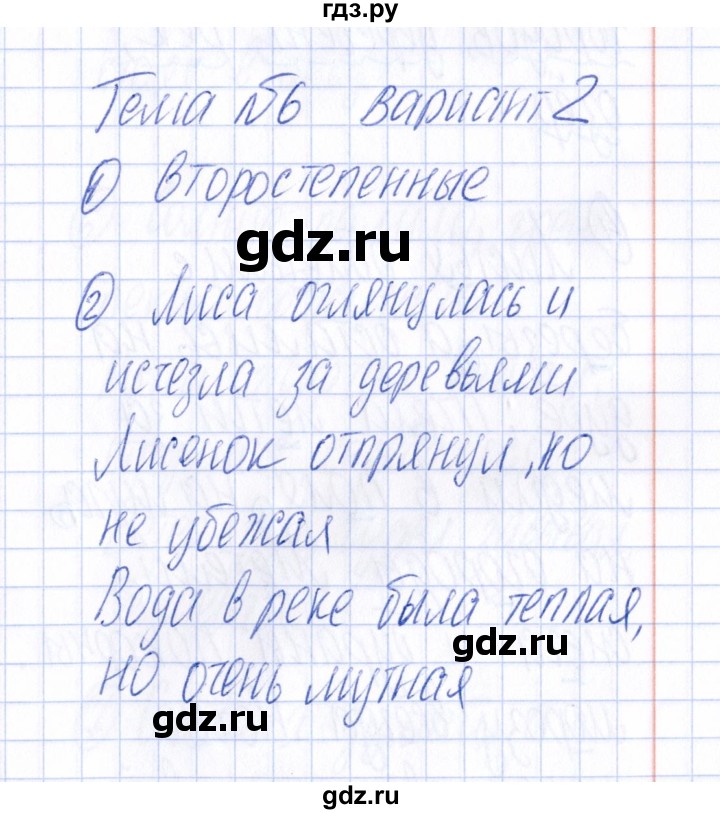 гдз.ру
Тема №6 вариант 2
1) Второстепенные
gdz.ru
2) Лиса оглянулась и
исчезла за деревьями
Лисенок отпрянул, но
не убежал
Вода в реке была теплая,
gdz.ru
но очень мутная
gdz.ru
gdz.ru